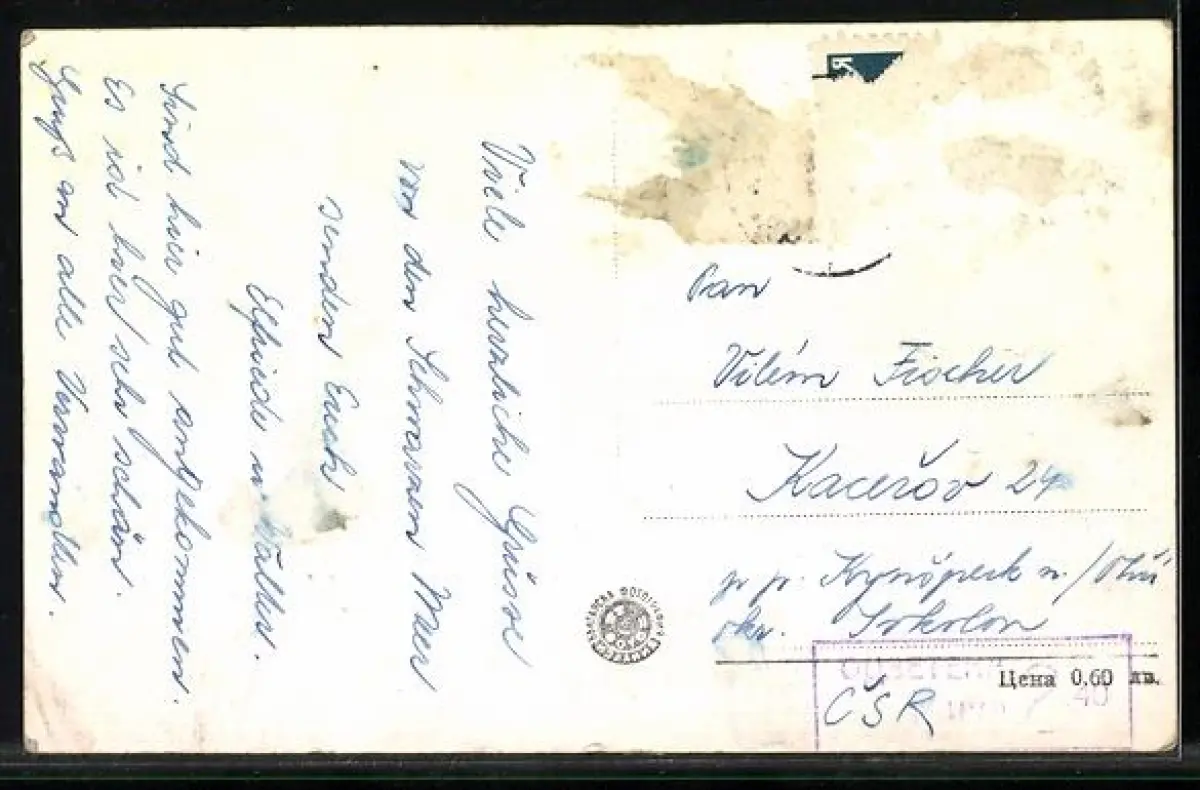 Viele herzliche Grüsse
von den Schwarzen Meer
senden Euch
Elfriede u. Walter.
Sind hier gut angekommen.
Es ist hier sehr schön.
Gruß an alle Verwandten.
Pan
Vilém Fischer
Kaceřov 24
p. p. Kynšperk n./Ohří
okr. Sokolov
Цена 0.60 лв.
ČSR
40